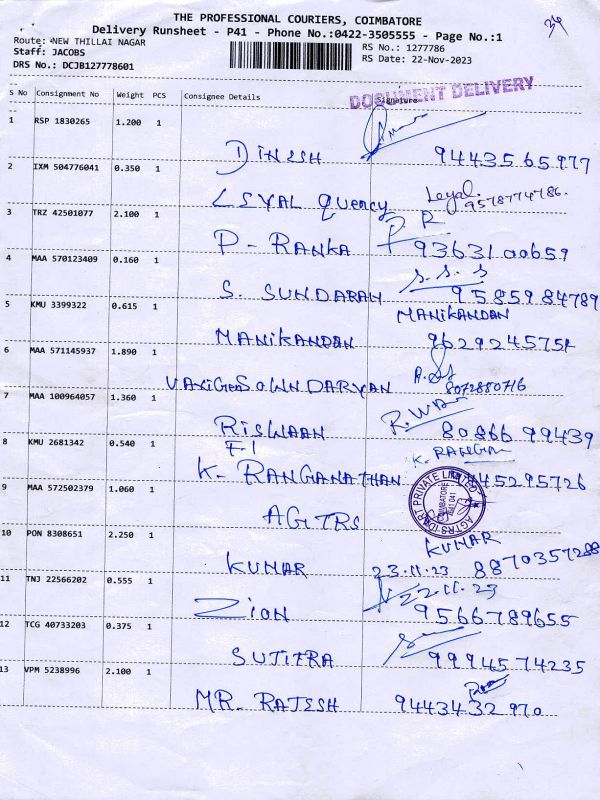 THE PROFESSIONAL COURIERS, COIMBATORE
Delivery Runsheet - P41 - Phone No.:0422-3505555 - Page No.:1
Route: NEW THILLAI NAGAR
Staff: JACOBS
RS No.: 1277786
DRS No.: DCJB127778601
RS Date: 22-Nov-2023
S No Consignment No Weight PCS Consignee Details Signature
DOCUMENT DELIVERY
1 RSP 1830265 1.200 1
DINESH 9443565977
2 IXM 504776041 0.350 1
LSYAL Quency Leyal. 9578774786.
3 TRZ 42501077 2.100 1
P-RANKA PR 9363100659
4 MAA 570123409 0.160 1
S. SUNDARAN S.S.S 9585984789
5 KMU 3399322 0.615 1
MANIKANDAN MANIKANDAN
6 MAA 571145937 1.890 1
DARYAN 8072880716
7 MAA 100964057 1.360 1
RISWAAN 8086699439
8 KMU 2681342 0.540 1
F1
K. RANGANATHAN 45295726
9 MAA 572502379 1.060 1
AGTRS
AGTRS PRIVATE LIMITED
COIMBATORE
641 041
10 PON 8308651 2.250 1
KUMAR KUMAR
23.11.23 8870357288
11 TNJ 22566202 0.555 1
22.11.23
ZION 9566789655
12 TCG 40733203 0.375 1
SUTITRA 9994574235
13 VPM 5238996 2.100 1
MR. RAJESH 9443432970